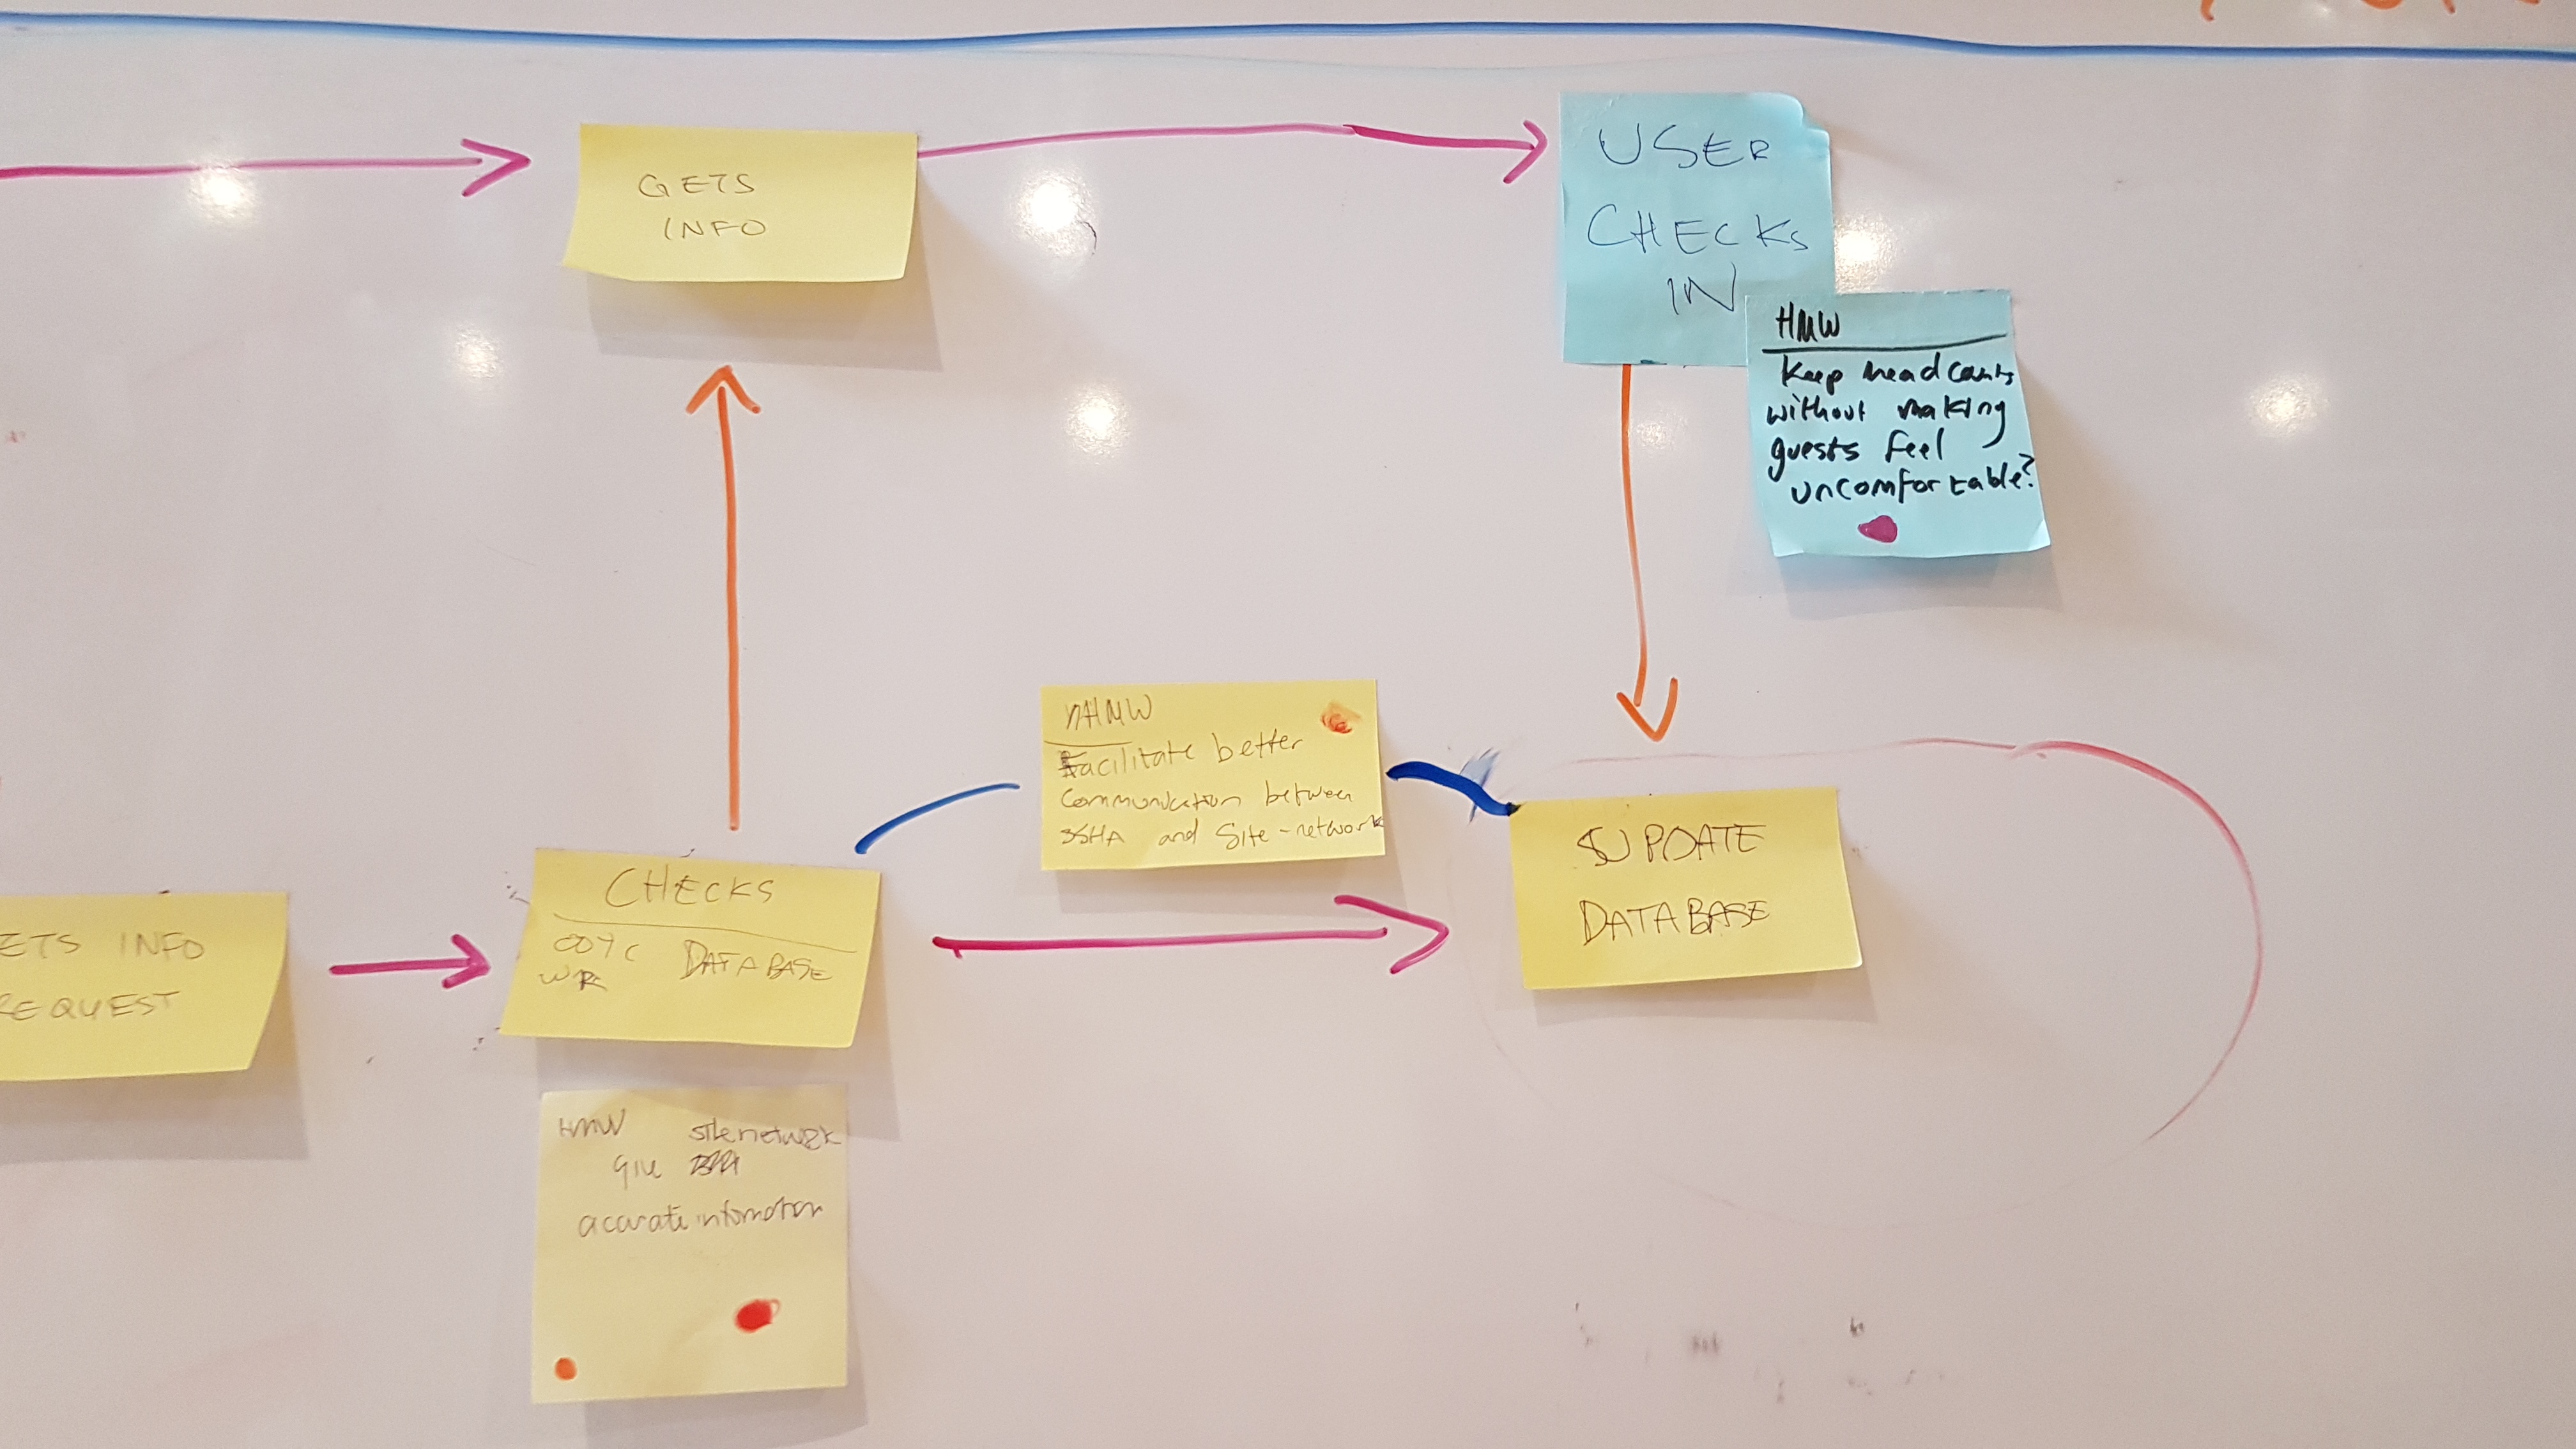 GETS
INFO
USER
CHECKS
IN
HMW
Keep head counts
without making
guests feel
uncomfortable?
HMW
Facilitate better
communication between
SSHA and Site-network
UPDATE
DATABASE
CHECKS
DATABASE
ETS INFO
REQUEST
HMW site network
give
accurate information